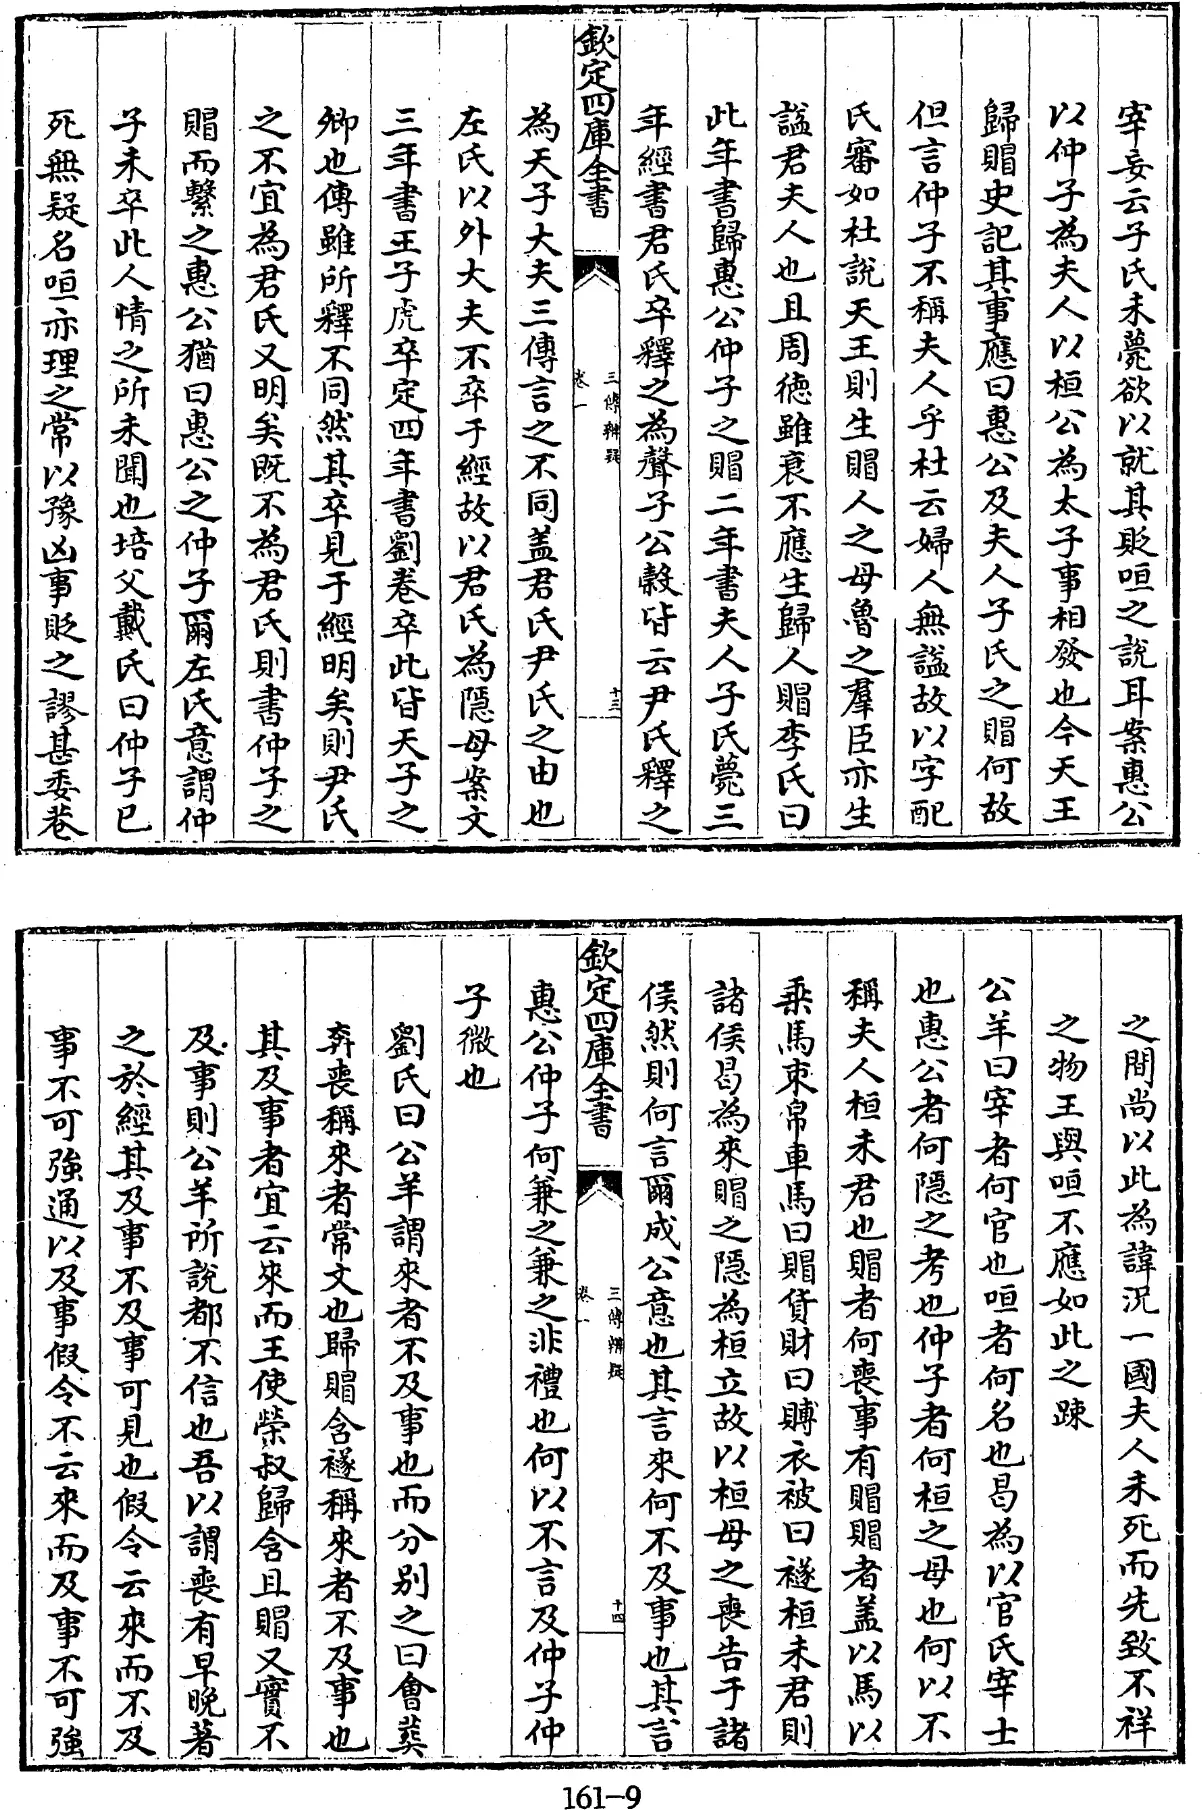 宰妄云子氏未薨欲以就其貶咺之說耳案惠公
以仲子為夫人以桓公為太子事相發也今天王
歸賵史記其事應曰惠公及夫人子氏之賵何故
但言仲子不稱夫人乎杜云婦人無諡故以字配
氏審如杜說天王則生賵人之母魯之羣臣亦生
諡君夫人也且周德雖衰不應生歸人賵李氏曰
此年書歸惠公仲子之賵二年書夫人子氏薨三
年經書君氏卒釋之為聲子公榖皆云尹氏釋之
欽定四庫全書
三傳辨疑
卷一
十三
為天子大夫三傳言之不同葢君氏尹氏之由也
左氏以外大夫不卒于經故以君氏為隠母案文
三年書王子虎卒定四年書劉卷卒此皆天子之
卿也傳雖所釋不同然其卒見于經明矣則尹氏
之不宜為君氏又明矣既不為君氏則書仲子之
賵而繫之惠公猶曰惠公之仲子爾左氏意謂仲
子未卒此人情之所未聞也培父戴氏曰仲子已
死無疑名咺亦理之常以豫凶事貶之謬甚委巷
之間尚以此為諱况一國夫人未死而先致不祥
之物王與咺不應如此之踈
公羊曰宰者何官也咺者何名也曷為以官氏宰士
也惠公者何隠之考也仲子者何桓之母也何以不
稱夫人桓未君也賵者何喪事有賵賵者葢以馬以
乘馬束帛車馬曰賵貨財曰賻衣被曰襚桓未君則
諸侯曷為來賵之隠為桓立故以桓母之喪告于諸
侯然則何言爾成公意也其言來何不及事也其言
欽定四庫全書
三傳辨疑
卷一
十四
惠公仲子何兼之兼之非禮也何以不言及仲子仲
子微也
劉氏曰公羊謂來者不及事也而分别之曰會葬
奔喪稱來者常文也歸賵含襚稱來者不及事也
其及事者宜云來而王使榮叔歸含且賵又實不
及事則公羊所說都不信也吾以謂喪有早晚著
之於經其及事不及事可見也假令云來而不及
事不可強通以及事假令不云來而及事不可強
161-9